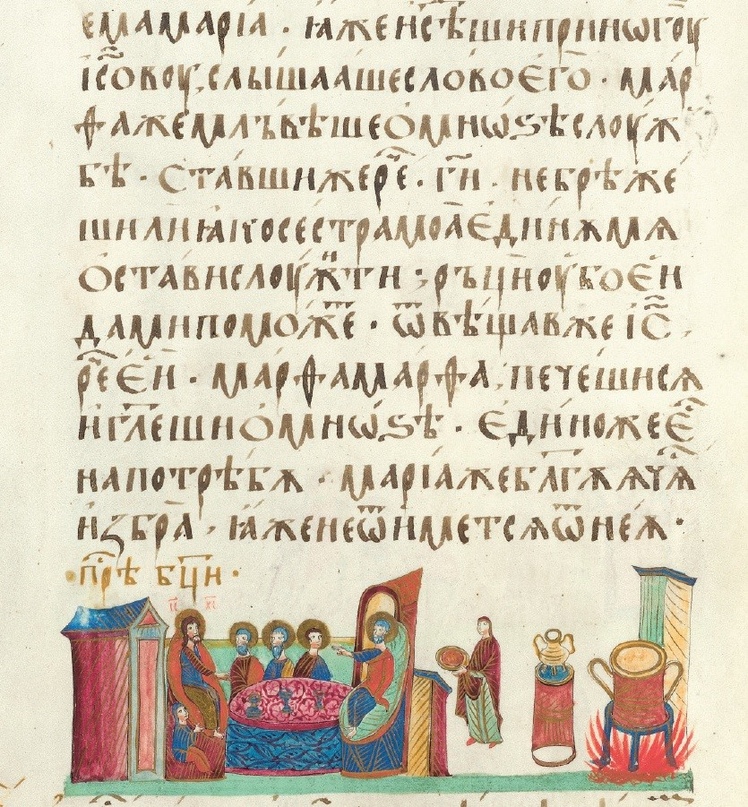 емамаріа · ꙗжеисѣшипринѡгоу
іс҃овоу, слышаашесловоего · мар
ѳажемлъвѣшеѻмнѡѕѣслоуж
бѣ · ставшижере҃ · ги҃ · небрѣже
шилиꙗкосестрамоаединѫмѧ
ѻставислоуж҃ти : рьциоубоеи
дамипоможе҃ · ѿвѣщавжеіс҃ ·
ре҃еи · марѳамарѳа, печешисѧ
игле҃шиѻмнѡѕѣ · единожее҃
напотрѣбѫ · маріажеблг҃ѫѫчѧ҃
избра · ꙗженеѿиметсѧѿнеѫ ·
· прѣ҃ бци҃ ·
іс҃ хс҃